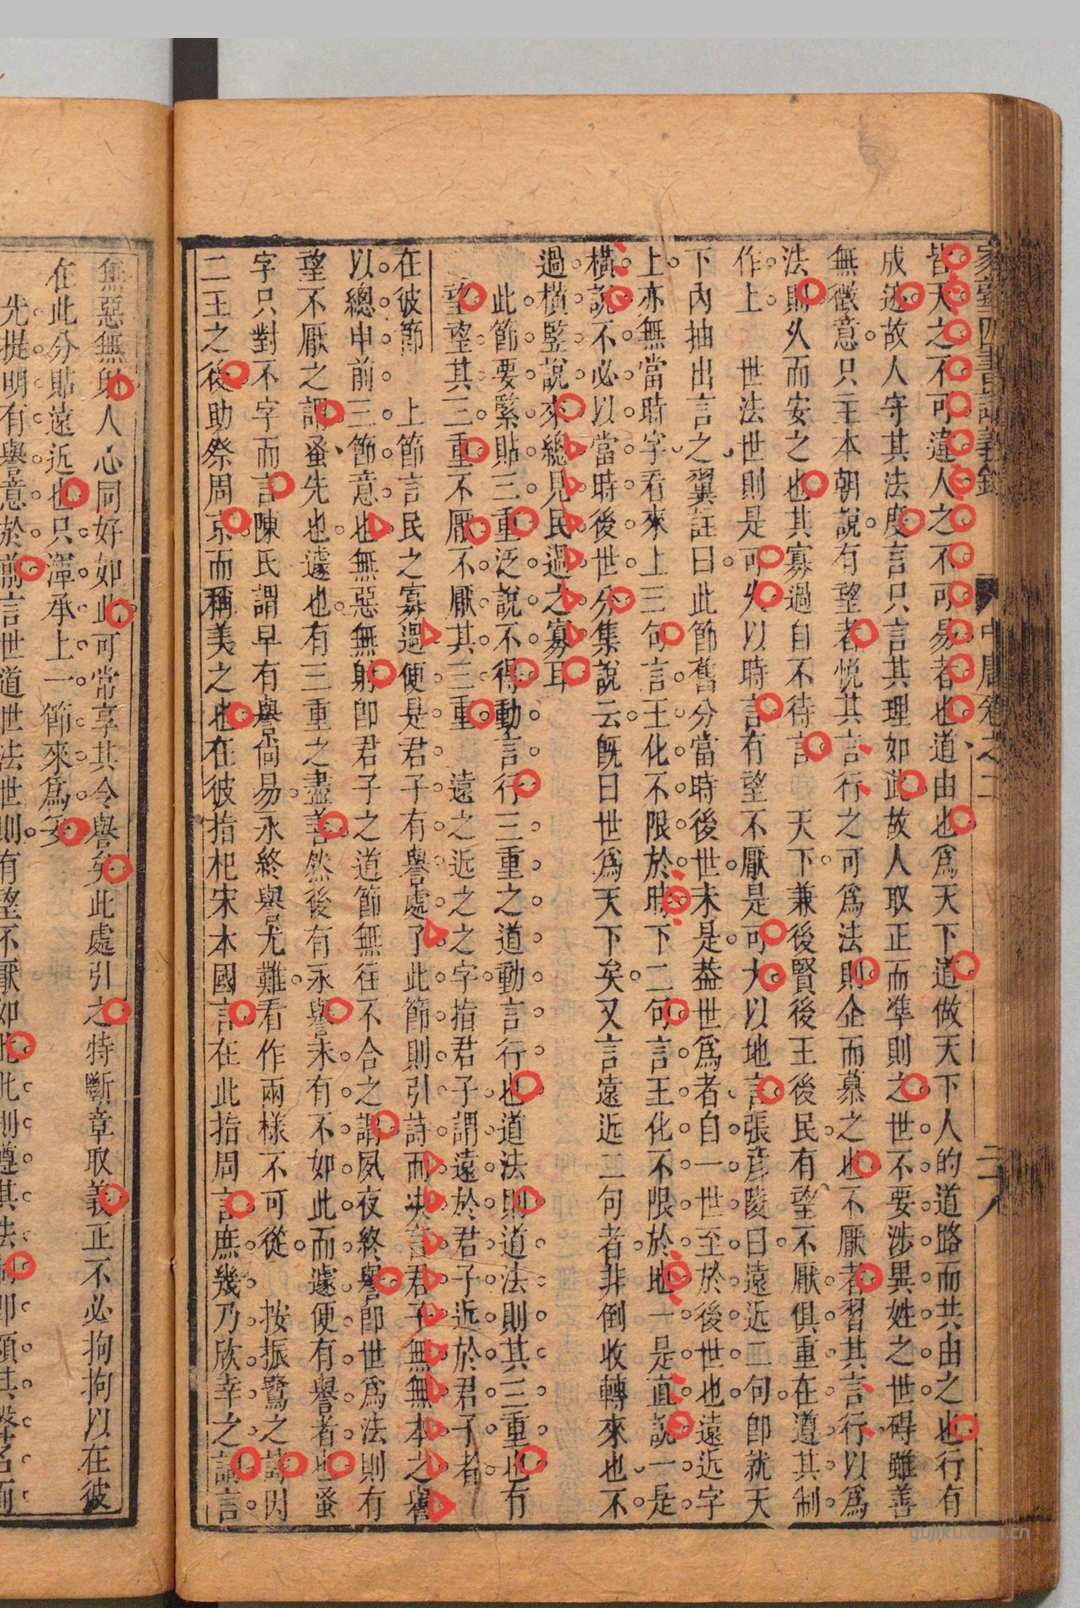 皆天之不可違人之不可易者也道由也為天下道做天下人的道路而共由之也行有
成迹故人守其法度言只言其理如此故人取正而準則之世不要涉異姓之世碍雖善
無徵意只主本朝說有望者悅其言行之可為法則企而慕之也不厭者習其言行以為
法則久而安之也其寡過自不待言 天下兼後賢後王後民有望不厭俱重在遵其制
作上 世法世則是可久以時言有望不厭是可大以地言張彥陵曰遠近二句卽就天
下內抽出言之翼註曰此節舊分當時後世未是葢世為者自一世至於後世也遠近字
上亦無當時字看來上三句言王化不限於時下二句言王化不限於地一是直說一是
橫說不必以當時後世分集說云旣曰世為天下矣又言遠近二句者非倒收轉來也不
過橫豎說來總見民過之寡耳
此節要緊貼三重泛說不得動言行三重之道動言行也道法則道法則其三重也有
望望其三重不厭不厭其三重 遠之近之之字指君子謂遠於君子近於君子者
在彼節 上節言民之寡過便是君子有譽處了此節則引詩而決言君子無無本之譽
以總申前三節意也無惡無射卽君子之道節無往不合之謂夙夜終譽卽世為法則有
望不厭之謂蚤先也遽也有三重之盡善然後有永譽未有不如此而遽便有譽者也蚤
字只對不字而言陳氏謂早有譽尙易永終譽尤難看作兩樣不可從 按振鷺之詩因
二王之後助祭周京而稱美之也在彼指杞宋本國言在此指周言庶幾乃欣幸之詞言
無惡無射人心同好如此可常享其令譽矣此處引之特斷章取義正不必拘拘以在彼
在此分貼遠近也只渾承上一節來為妥
光提明有譽意於前言世道世法世則有望不厭如此此則遵其法
家塾四書講義錄 中庸卷之二